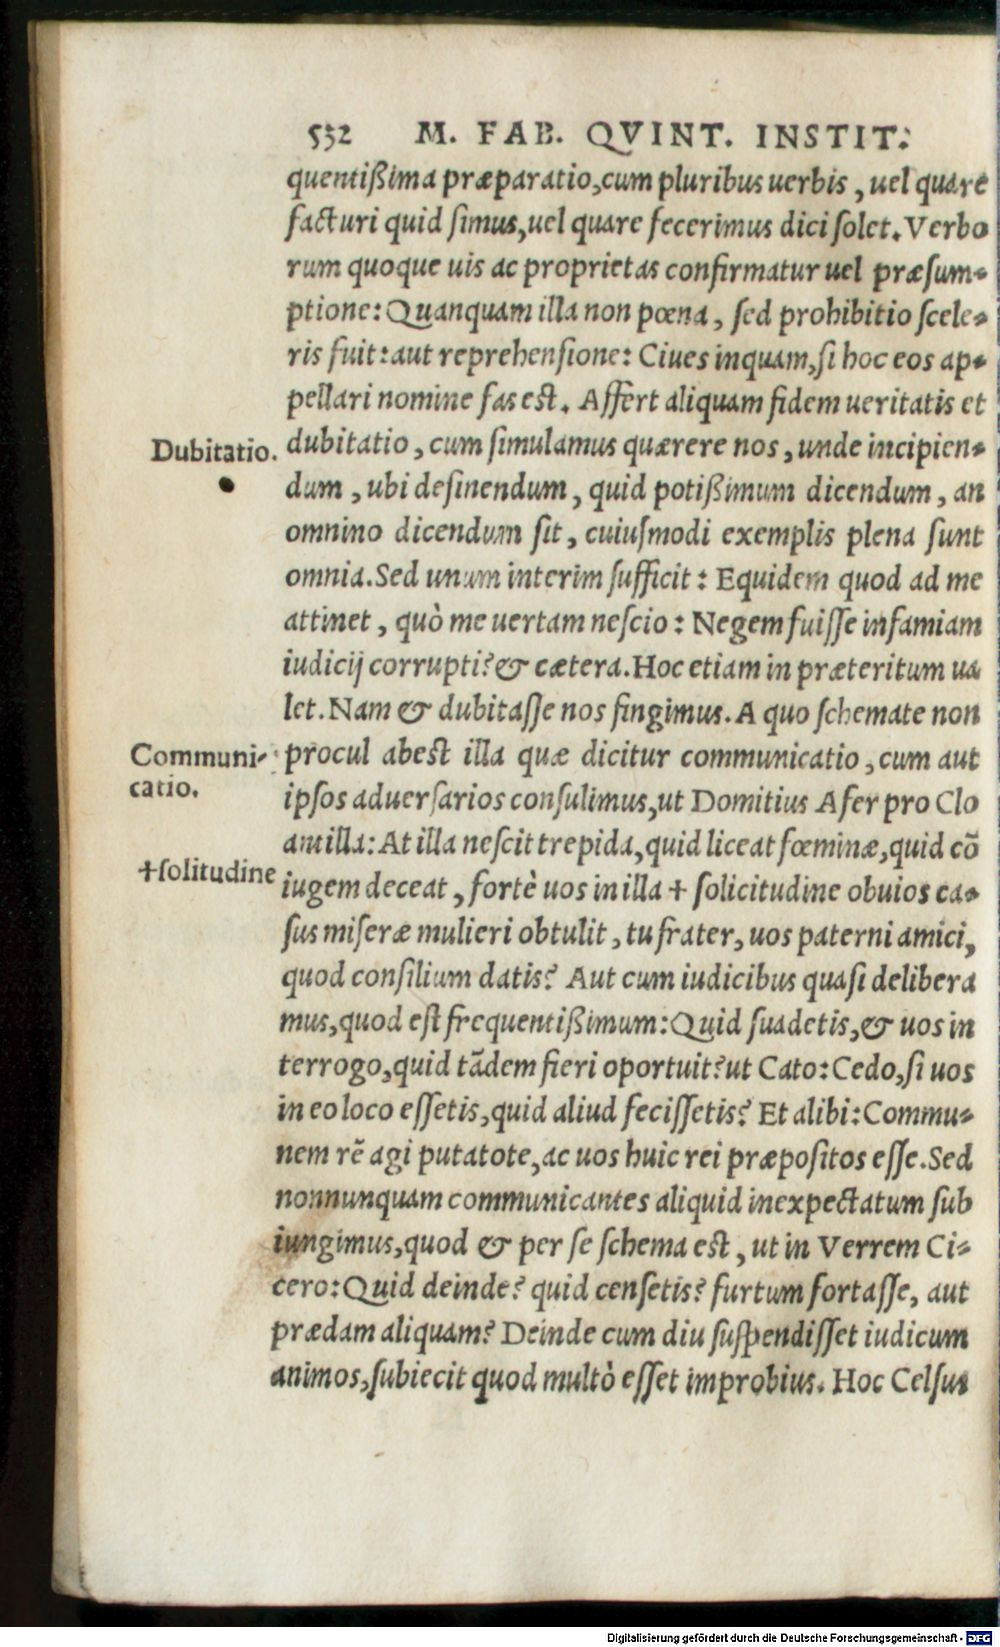 532 M. FAB. QVINT. INSTIT.
quentißima præparatio, cum pluribus uerbis, uel quare
facturi quid simus, uel quare fecerimus dici solet. Verbo
rum quoque uis ac proprietas confirmatur uel præsum-
ptione: Quanquam illa non pœna, sed prohibitio scele-
ris fuit: aut reprehensione: Ciues inquam, si hoc eos ap-
pellari nomine fas est. Affert aliquam fidem ueritatis et
Dubitatio.
dubitatio, cum simulamus quærere nos, unde incipien-
dum, ubi desinendum, quid potißimum dicendum, an
omnino dicendum sit, cuiusmodi exemplis plena sunt
omnia. Sed unum interim sufficit: Equidem quod ad me
attinet, quò me uertam nescio: Negem fuisse infamiam
iudicij corrupti? & cætera. Hoc etiam in præteritum ua
let. Nam & dubitasse nos fingimus. A quo schemate non
Communi-
catio.
procul abest illa quæ dicitur communicatio, cum aut
ipsos aduersarios consulimus, ut Domitius Afer pro Clo
antilla: At illa nescit trepida, quid liceat fœminæ, quid cō
+solitudine
iugem deceat, fortè uos in illa + solicitudine obuios ca-
sus miseræ mulieri obtulit, tu frater, uos paterni amici,
quod consilium datis? Aut cum iudicibus quasi delibera
mus, quod est frequentißimum: Quid suadetis, & uos in
terrogo, quid tādem fieri oportuit? ut Cato: Cedo, si uos
in eo loco essetis, quid aliud fecissetis? Et alibi: Commu-
nem rē agi putatote, ac uos huic rei præpositos esse. Sed
nonnunquam communicantes aliquid inexpectatum sub
iungimus, quod & per se schema est, ut in Verrem Ci-
cero: Quid deinde? quid censetis? furtum fortasse, aut
prædam aliquam? Deinde cum diu suspendisset iudicum
animos, subiecit quod multò esset improbius. Hoc Celsus
Digitalisierung gefördert durch die Deutsche Forschungsgemeinschaft - DFG